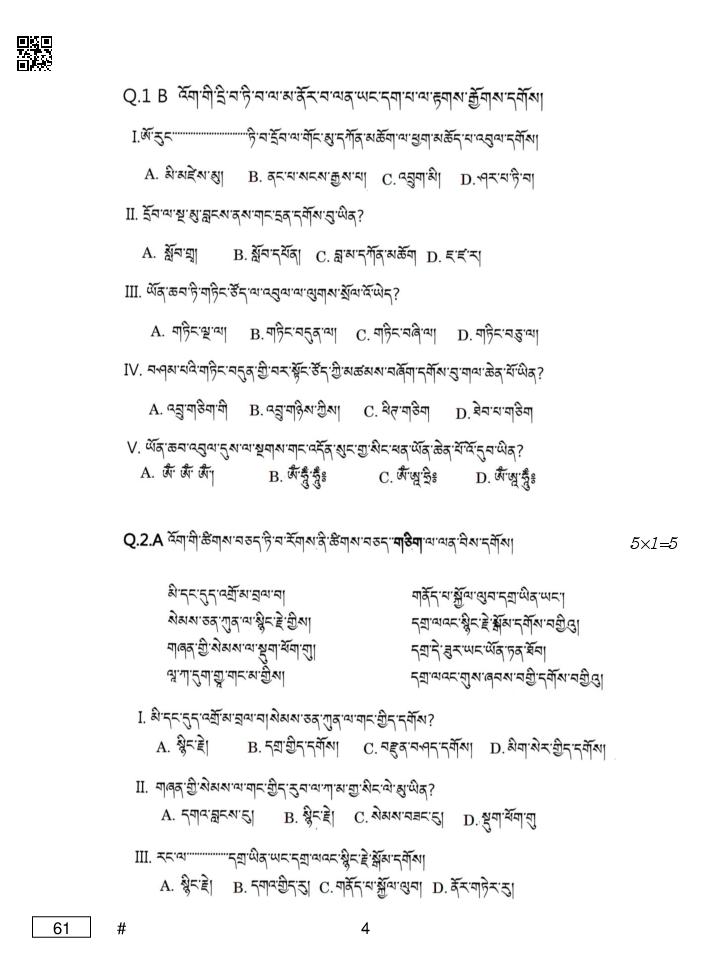 Q.1 B འོག་གི་དྲི་བ་ཏི་བ་ལ་མ་ནོར་བ་ལན་ཡང་དག་པ་ལ་རྟགས་རྒྱོགས་དགོས།
I.ཨོ་རུང་……………………ཏི་བ་དྲོབ་ལ་གོང་མུ་དཀོན་མཆོག་ལ་ཕྱག་མཆོད་པ་འབུལ་དགོས།
A. མི་མཛེས་མུ། B. ནང་པ་སངས་རྒྱས་པ། C. འབྲུག་མི། D. ཤར་པ་ཏི་བ།
II. དྲོབ་ལ་སྔ་མུ་བླངས་ནས་གང་དྲན་དགོས་བུ་ཡིན?
A. སློབ་གྲྭ། B. སློབ་དཔོན། C. བླ་མ་དཀོན་མཆོག D. ཇ་ཛ་ར།
III. ཡོན་ཆབ་ཏི་གཏིང་ཙོད་ལ་འབུལ་ལ་ལུགས་སྲོལ་འོ་ཡེད?
A. གཏིང་ལྔ་ལ། B. གཏིང་བདུན་ལ། C. གཏིང་བཞི་ལ། D. གཏིང་བཅུ་ལ།
IV. བཤམ་པའི་གཏིང་བདུན་གྱི་བར་སྟོང་ཙོད་ཀྱི་མཚམས་བཞོག་དགོས་བུ་གལ་ཆེན་པོ་ཡིན?
A. འབྲུ་གཅིག་གི B. འབྲུ་གཉིས་ཀྱིས། C. ཕིཊ་གཅིག D. ཐེབ་པ་གཅིག
V. ཡོན་ཆབ་འབུལ་དུས་ལ་སྔགས་གང་འདོན་སུང་གྱ་སིང་ཕན་ཡོན་ཆེན་པོ་འོ་དུབ་ཡིན?
A. ཨོཾ་ ཨོཾ་ ཨོཾ། B. ཨོཾ་ཧཱུྃ་ཧཱུྃ༔ C. ཨོཾ་ཨཱ་ཧྲི༔ D. ཨོཾ་ཨཱ་ཧཱུྃ༔
Q.2.A འོག་གི་ཚིགས་བཅད་ཏི་བ་རོགས་ནི་ཚིགས་བཅད་གཅིག་ལ་ལན་བིས་དགོས། 5×1=5
མི་དང་དུད་འགྲོ་མ་བྲལ་བ།
སེམས་ཅན་ཀུན་ལ་སྙིང་རྗེ་གྱིས།
གཞན་གྱི་སེམས་ལ་སྡུག་ཕོག་གུ།
ལཱ་ཀ་དུག་གྱཱ་གང་མ་གྱིས།
གནོད་པ་སྐྱོལ་ལུབ་དགྲ་ཡིན་ཡང་།
དགྲ་ལའང་སྙིང་རྗེ་སྒོམ་དགོས་བགྱིའུ།
དགྲ་དེ་ཟུར་ཡང་ཡོན་ཏན་ཐོབ།
དགྲ་ལའང་གུས་ཞབས་བགྱི་དགོས་བགྱིའུ།
I. མི་དང་དུད་འགྲོ་མ་བྲལ་བ།སེམས་ཅན་ཀུན་ལ་གང་གྱིད་དགོས?
A. སྙིང་རྗེ། B. དགྲ་གྱིད་དགོས། C. བརྫུན་བཤད་དགོས། D. མིག་སེར་གྱིད་དགོས།
II. གཞན་གྱི་སེམས་ལ་གང་གྱིད་རུབ་ལ་ཀ་མ་གྱ་སིང་ལེ་མུ་ཡིན?
A. དགའ་བླངས་ངུ། B. སྙིང་རྗེ། C. སེམས་བཟང་ངུ། D. སྡུག་ཕོག་གུ
III. རང་ལ་……………དགྲ་ཡིན་ཡང་དགྲ་ལའང་སྙིང་རྗེ་སྒོམ་དགོས།
A. སྙིང་རྗེ། B. དགའ་གྱིད་རུ། C. གནོད་པ་སྐྱོལ་ལུབ། D. ནོར་གཏེར་རུ།
61 # 4